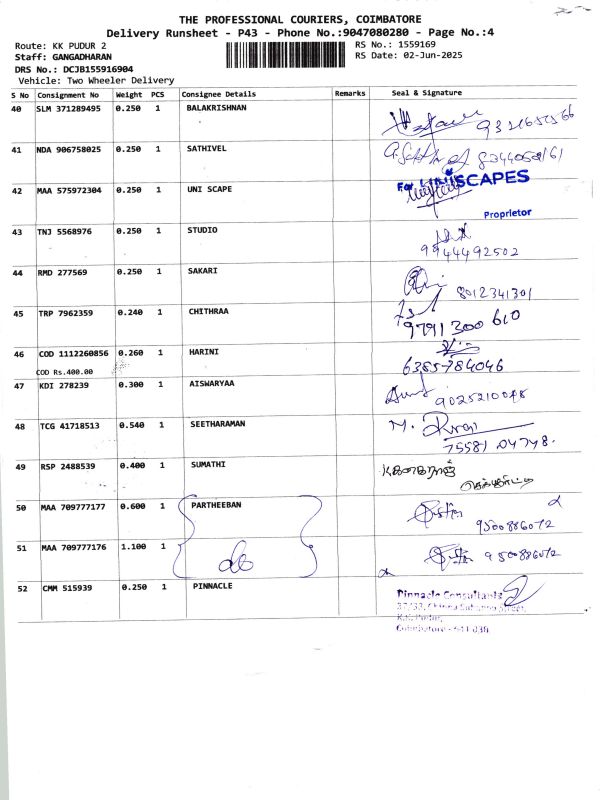 THE PROFESSIONAL COURIERS, COIMBATORE
Delivery Runsheet - P43 - Phone No.:9047080280 - Page No.:4
Route: KK PUDUR 2
RS No.: 1559169
Staff: GANGADHARAN
RS Date: 02-Jun-2025
DRS No.: DCJB155916904
Vehicle: Two Wheeler Delivery
S No Consignment No Weight PCS Consignee Details Remarks Seal & Signature
40 SLM 371289495 0.250 1 BALAKRISHNAN
41 NDA 906758025 0.250 1 SATHIVEL
42 MAA 575972304 0.250 1 UNI SCAPE
For UNISCAPES
Proprietor
43 TNJ 5568976 0.250 1 STUDIO
9944492502
44 RMD 277569 0.250 1 SAKARI
8012341301
45 TRP 7962359 0.240 1 CHITHRAA
9791 300 610
46 COD 1112260856 0.260 1 HARINI
COD Rs.400.00
6385784046
47 KDI 278239 0.300 1 AISWARYAA
9025210048
48 TCG 41718513 0.540 1 SEETHARAMAN
75581 04748.
49 RSP 2488539 0.400 1 SUMATHI
50 MAA 709777177 0.600 1 PARTHEEBAN
9500886072
51 MAA 709777176 1.100 1
9500886072
52 CMM 515939 0.250 1 PINNACLE
Pinnacle Consultants
K.K. Pudur,
Coimbatore - 641 038